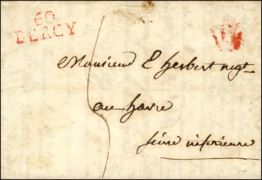 60
BERCY
Monsieur E herbert negt
au havre
seine inferieure